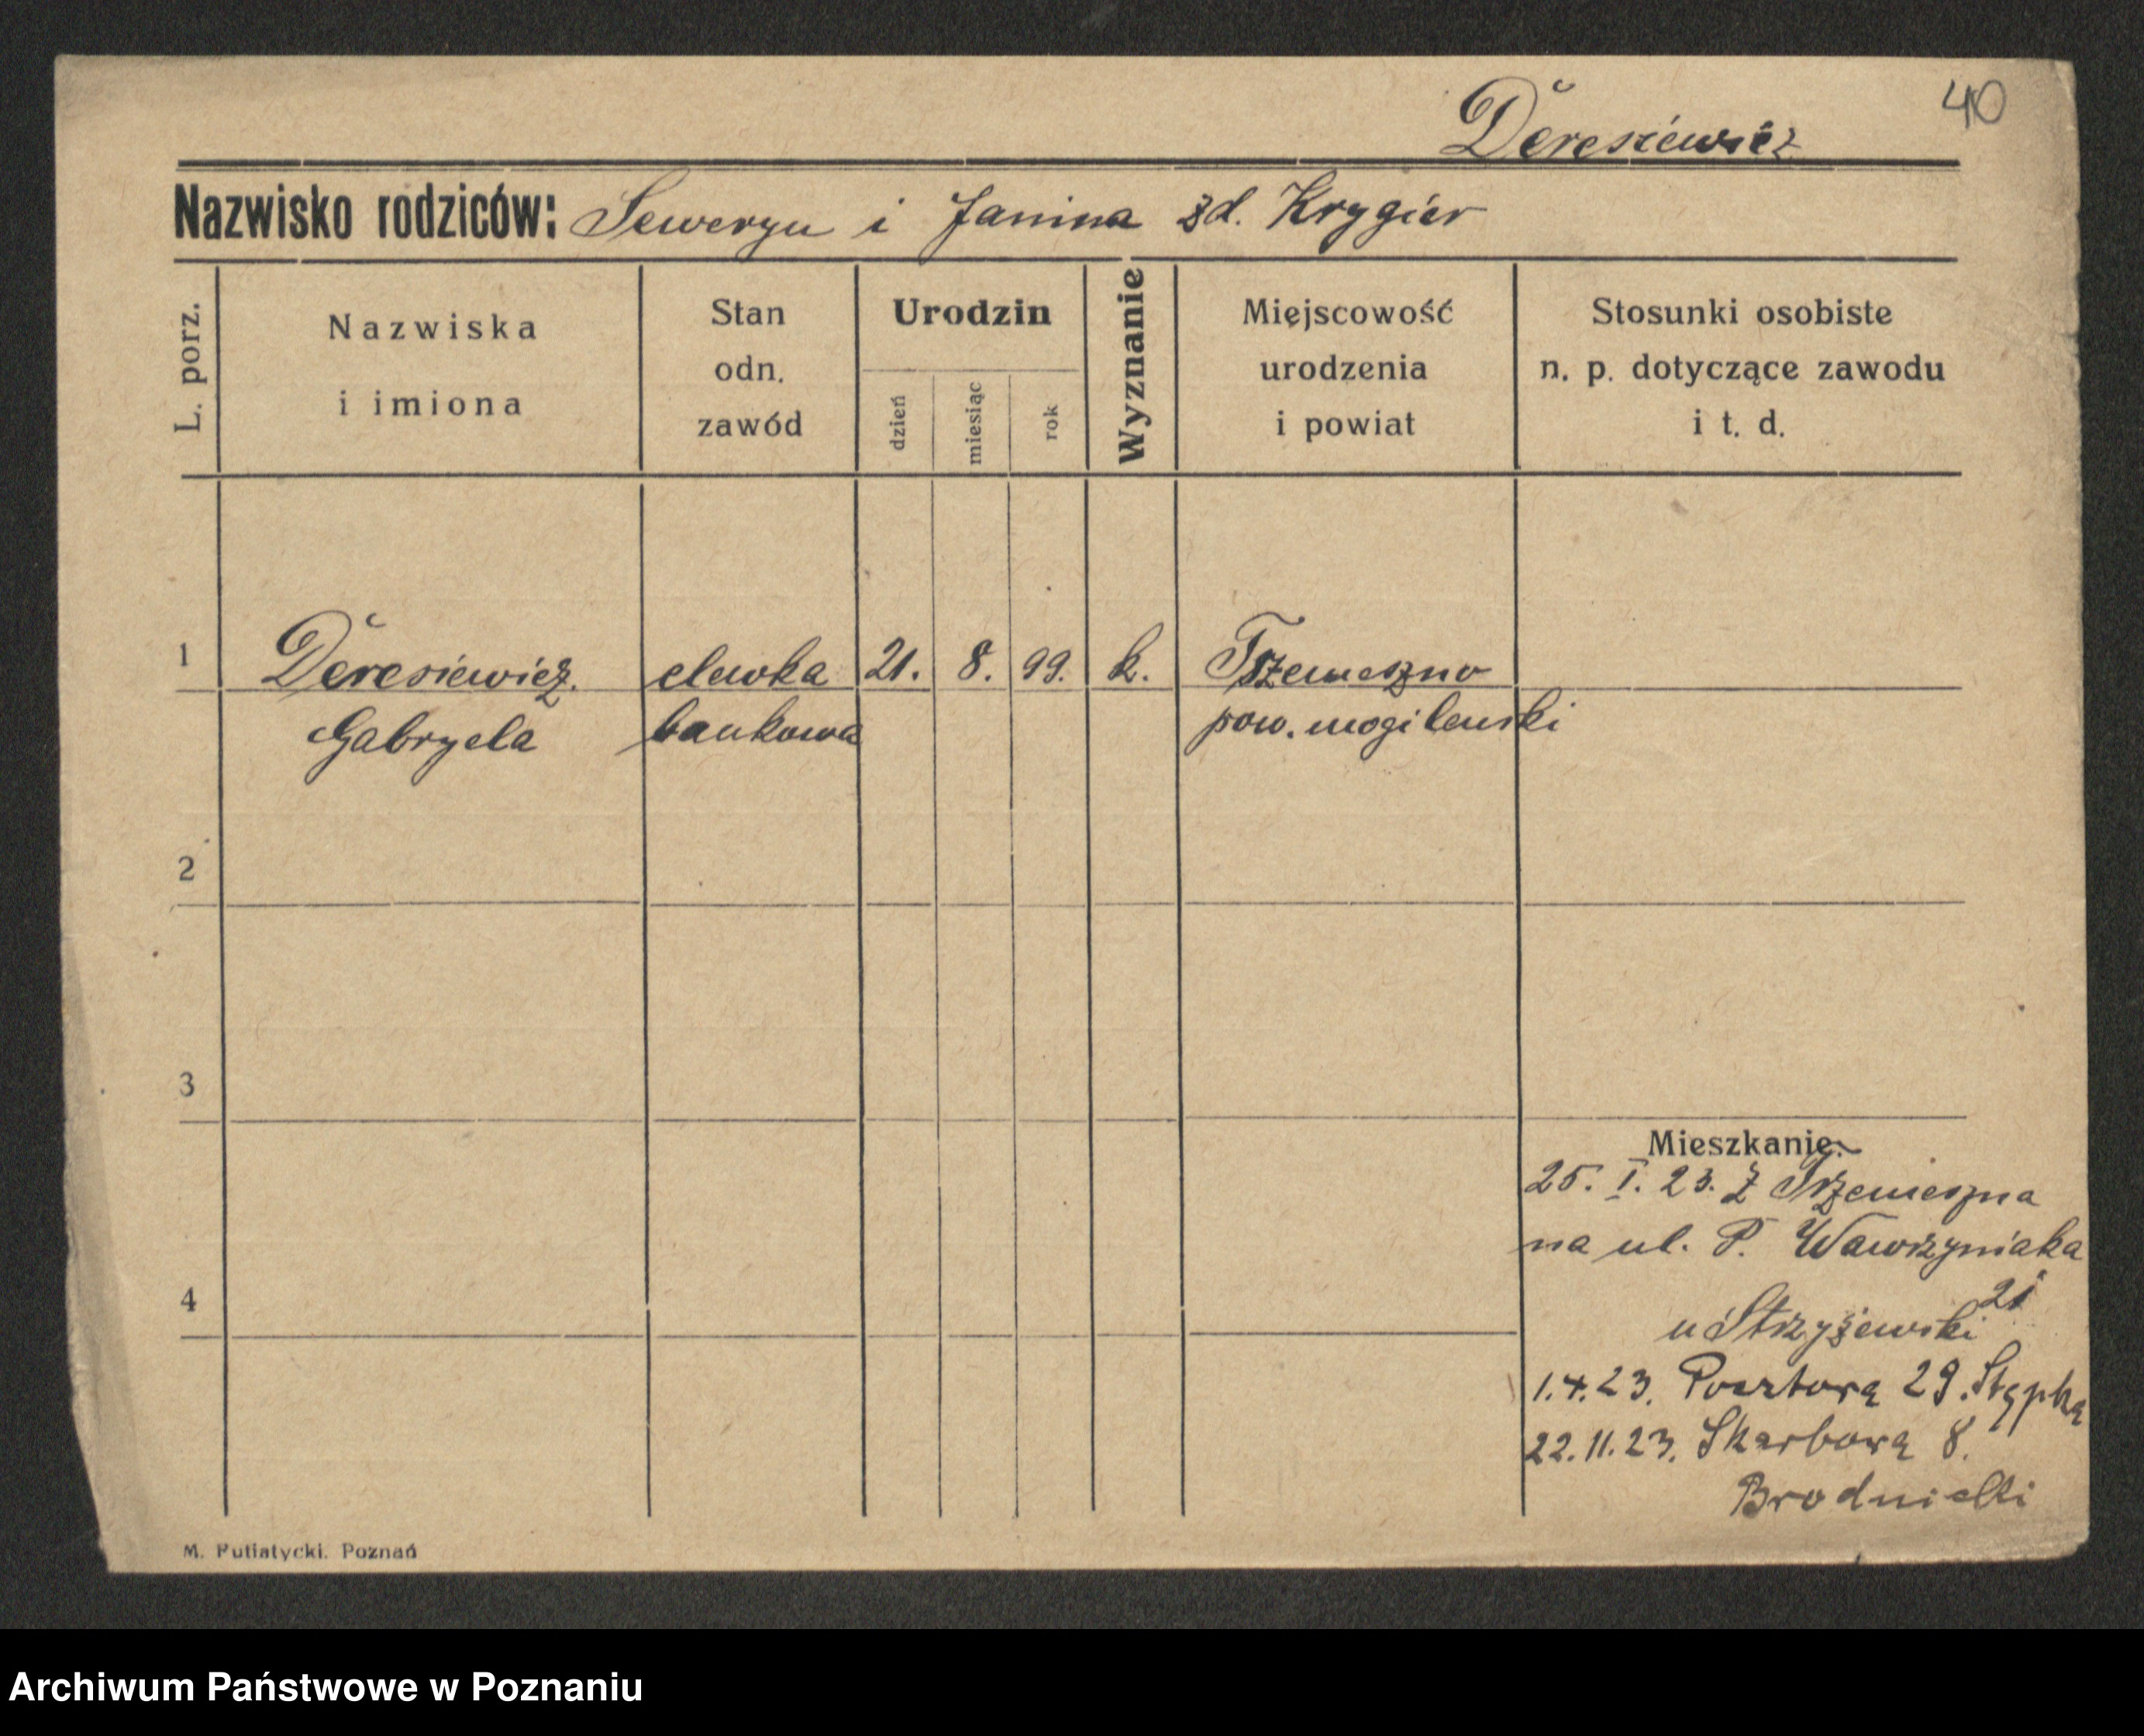 40
Deresiewicz
Nazwisko rodziców: Seweryn i Janina zd. Krygier
L. porz.
Nazwiska
i imiona
Stan
odn.
zawód
Urodzin
dzień
miesiąc
rok
Wyznanie
Miejscowość
urodzenia
i powiat
Stosunki osobiste
n. p. dotyczące zawodu
i t. d.
1 Deresiewicz. elewka 21. 8. 99. k. Trzemeszno
Gabryela bankowa pow. mogilenski
2
3
Mieszkanie:
25. I. 23. Z Trzemeszna
na ul. P. Wawrzyniaka
21
4
u Strzyżewski
1.4.23. Pocztową 29.
22.11.23. Skarbową 8.
M. Putiatycki. Poznań
Archiwum Państwowe w Poznaniu